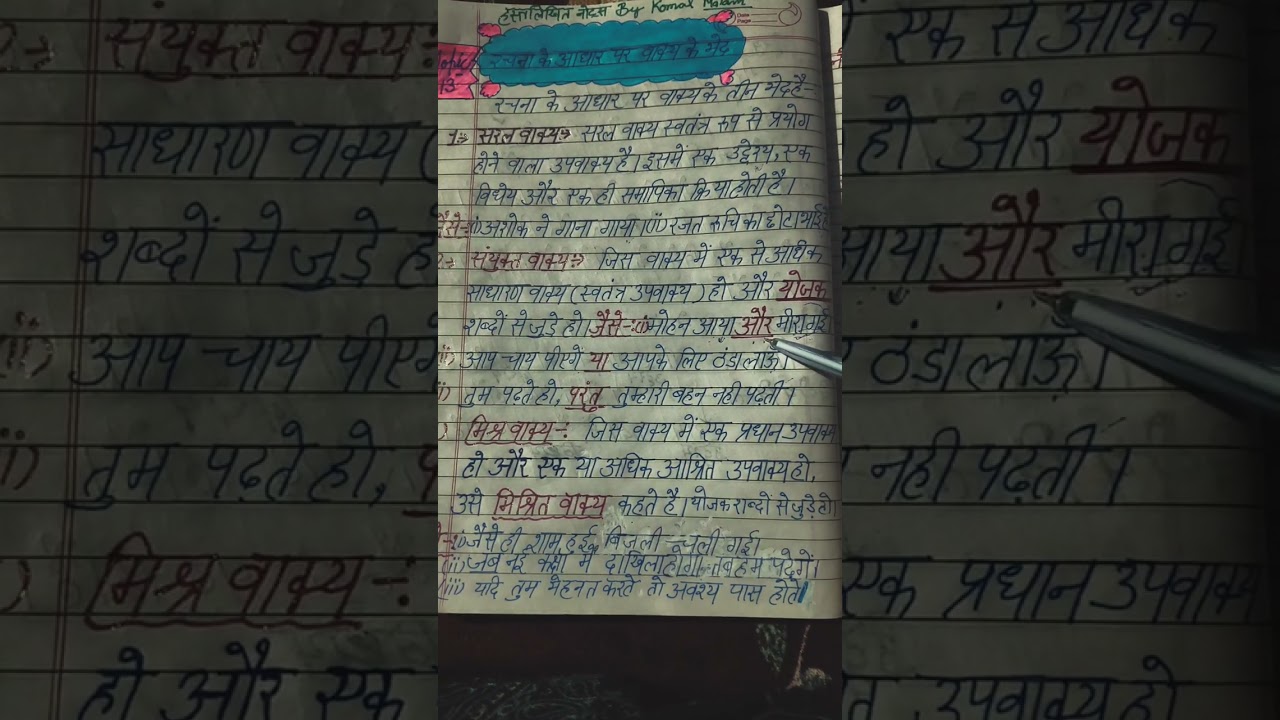 हस्तलिखित नोट्स By Komal Madam
Date
Page
रचना के आधार पर वाक्य के भेद
13
रचना के आधार पर वाक्य के तीन भेद है-
1:- सरल वाक्य:- सरल वाक्य स्वतंत्र रूप से प्रयोग
होने वाला उपवाक्य है। इसमें एक उद्देश्य, एक
विधेय और एक ही समापिका क्रिया होती है।
जैसे-:(i) अशोक ने गाना गाया (ii) रजत रुचि का छोटा भाई है
2:- संयुक्त वाक्य:- जिस वाक्य में एक से अधिक
साधारण वाक्य (स्वतंत्र उपवाक्य) हो और योजक
शब्दों से जुड़े हो। जैसे-:(i) मोहन आया और मीरा गई।
(ii) आप चाय पीएगे या आपके लिए ठंडा लाऊं।
(iii) तुम पढ़ते हो, परंतु तुम्हारी बहन नही पढ़ती।
मिश्र वाक्य-: जिस वाक्य में एक प्रधान उपवाक्य
हो और एक या अधिक आश्रित उपवाक्य हो,
उसे मिश्रित वाक्य कहते है। योजक शब्दों से जुड़े हो।
(i) जैसे ही शाम हुई, बिजली चली गई।
(ii) जब नई कक्षा में दाखिला होगा तब हम पढ़ेगें।
(iii) यदि तुम मेहनत करते तो अवश्य पास होते।